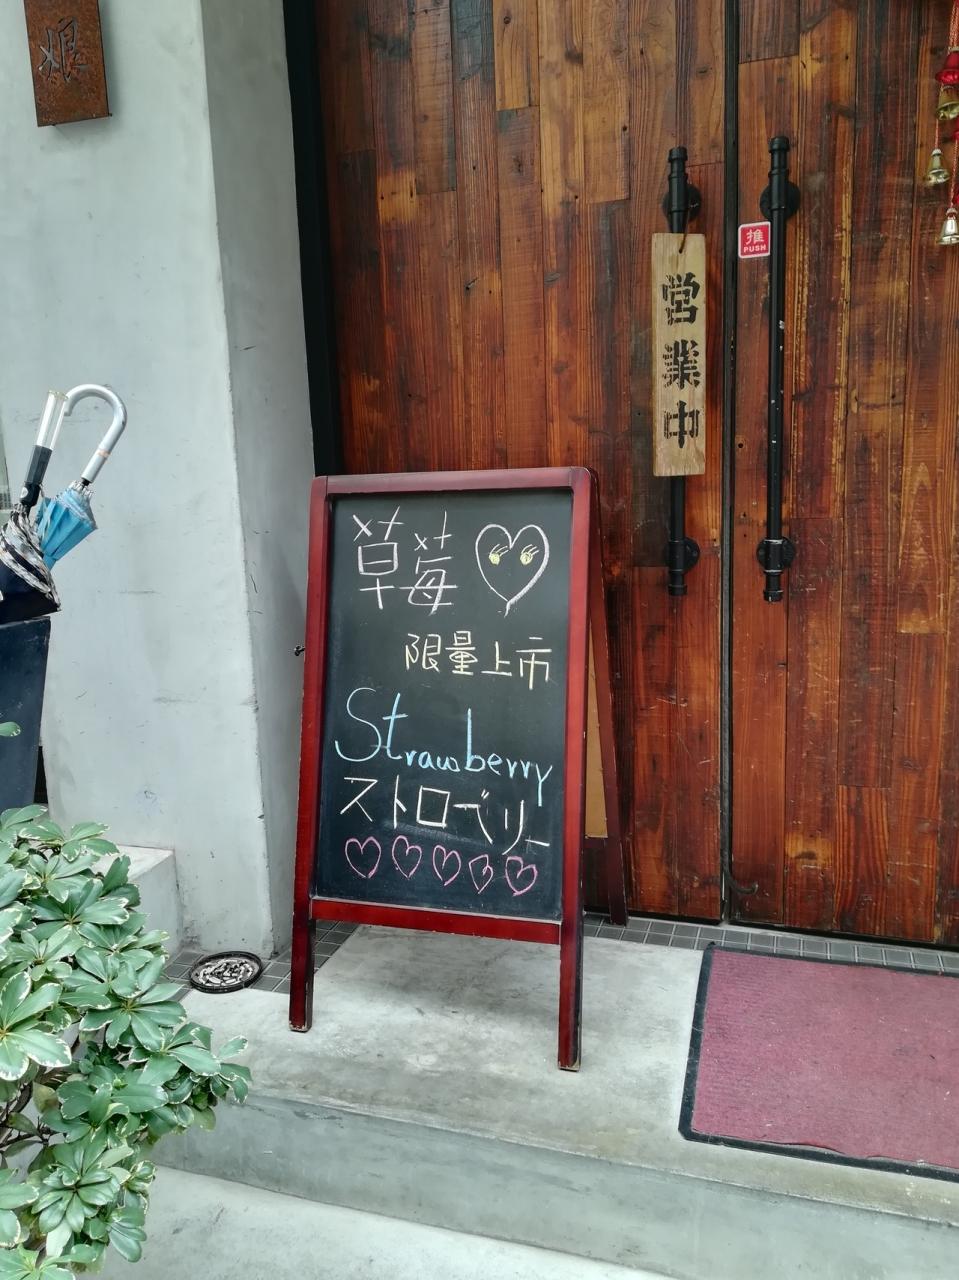 煨
推
PUSH
営業中
草莓
限量上市
Strawberry
ストロベリー